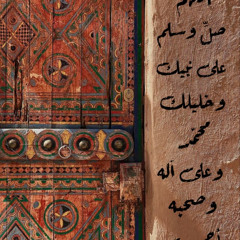 اللهم
صلّ وسلم
على نبيك
وخليلك
محمّد
وعلى آله
وصحبه